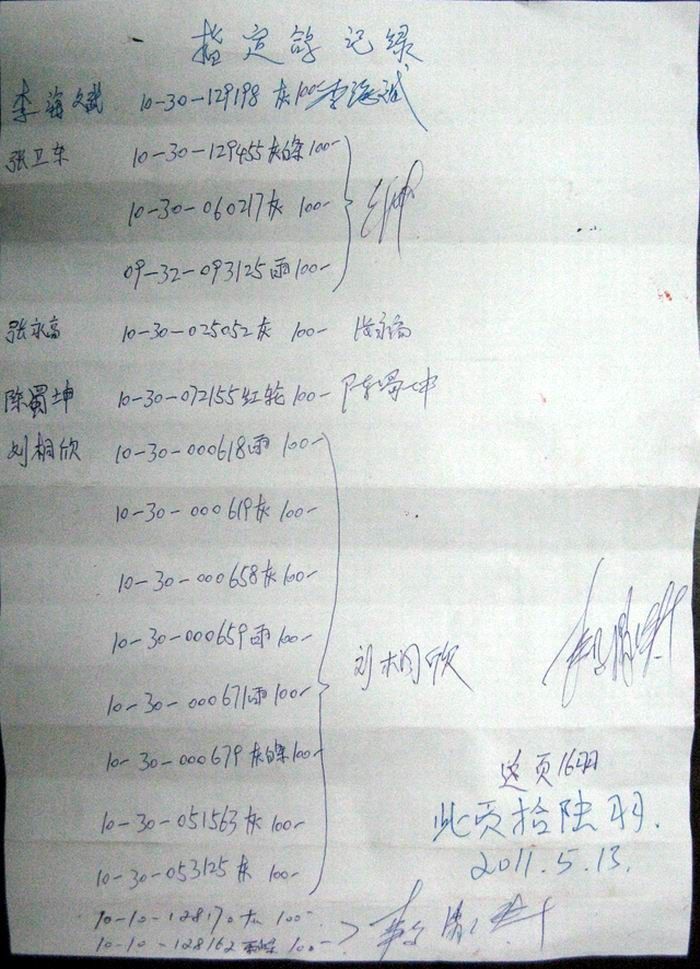 指定鸽记录
李海斌 10-30-129198 灰 100- 李海斌
张卫东 10-30-129455 灰白条 100-
10-30-060217 灰 100-
09-32-093125 雨 100-
张永高 10-30-025052 灰 100- 张永高
陈蜀坤 10-30-072155 红轮 100- 陈蜀坤
刘相欣 10-30-000618 雨 100-
10-30-000619 灰 100-
10-30-000658 灰 100-
10-30-000659 雨 100-
刘相欣
10-30-000671 雨 100-
10-30-000679 灰白条 100-
这页16羽
10-30-051563 灰 100-
此页拾陆羽.
10-30-053125 灰 100-
2011.5.13.
10-10-128170 100-
10-10-128162 100-